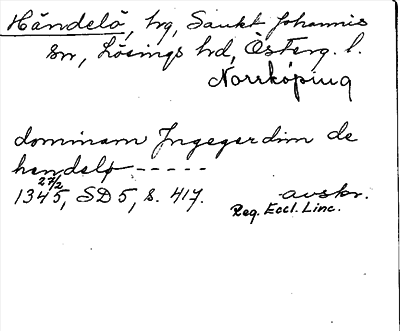 Händelö, hg, Sankt Johannis
sn, Lösings hd, Österg. l.
Norrköping
dominam Ingegerdim de
hendelø -----
27/2
1345, SD 5, s. 417. avskr.
Reg. Eccl. Linc.